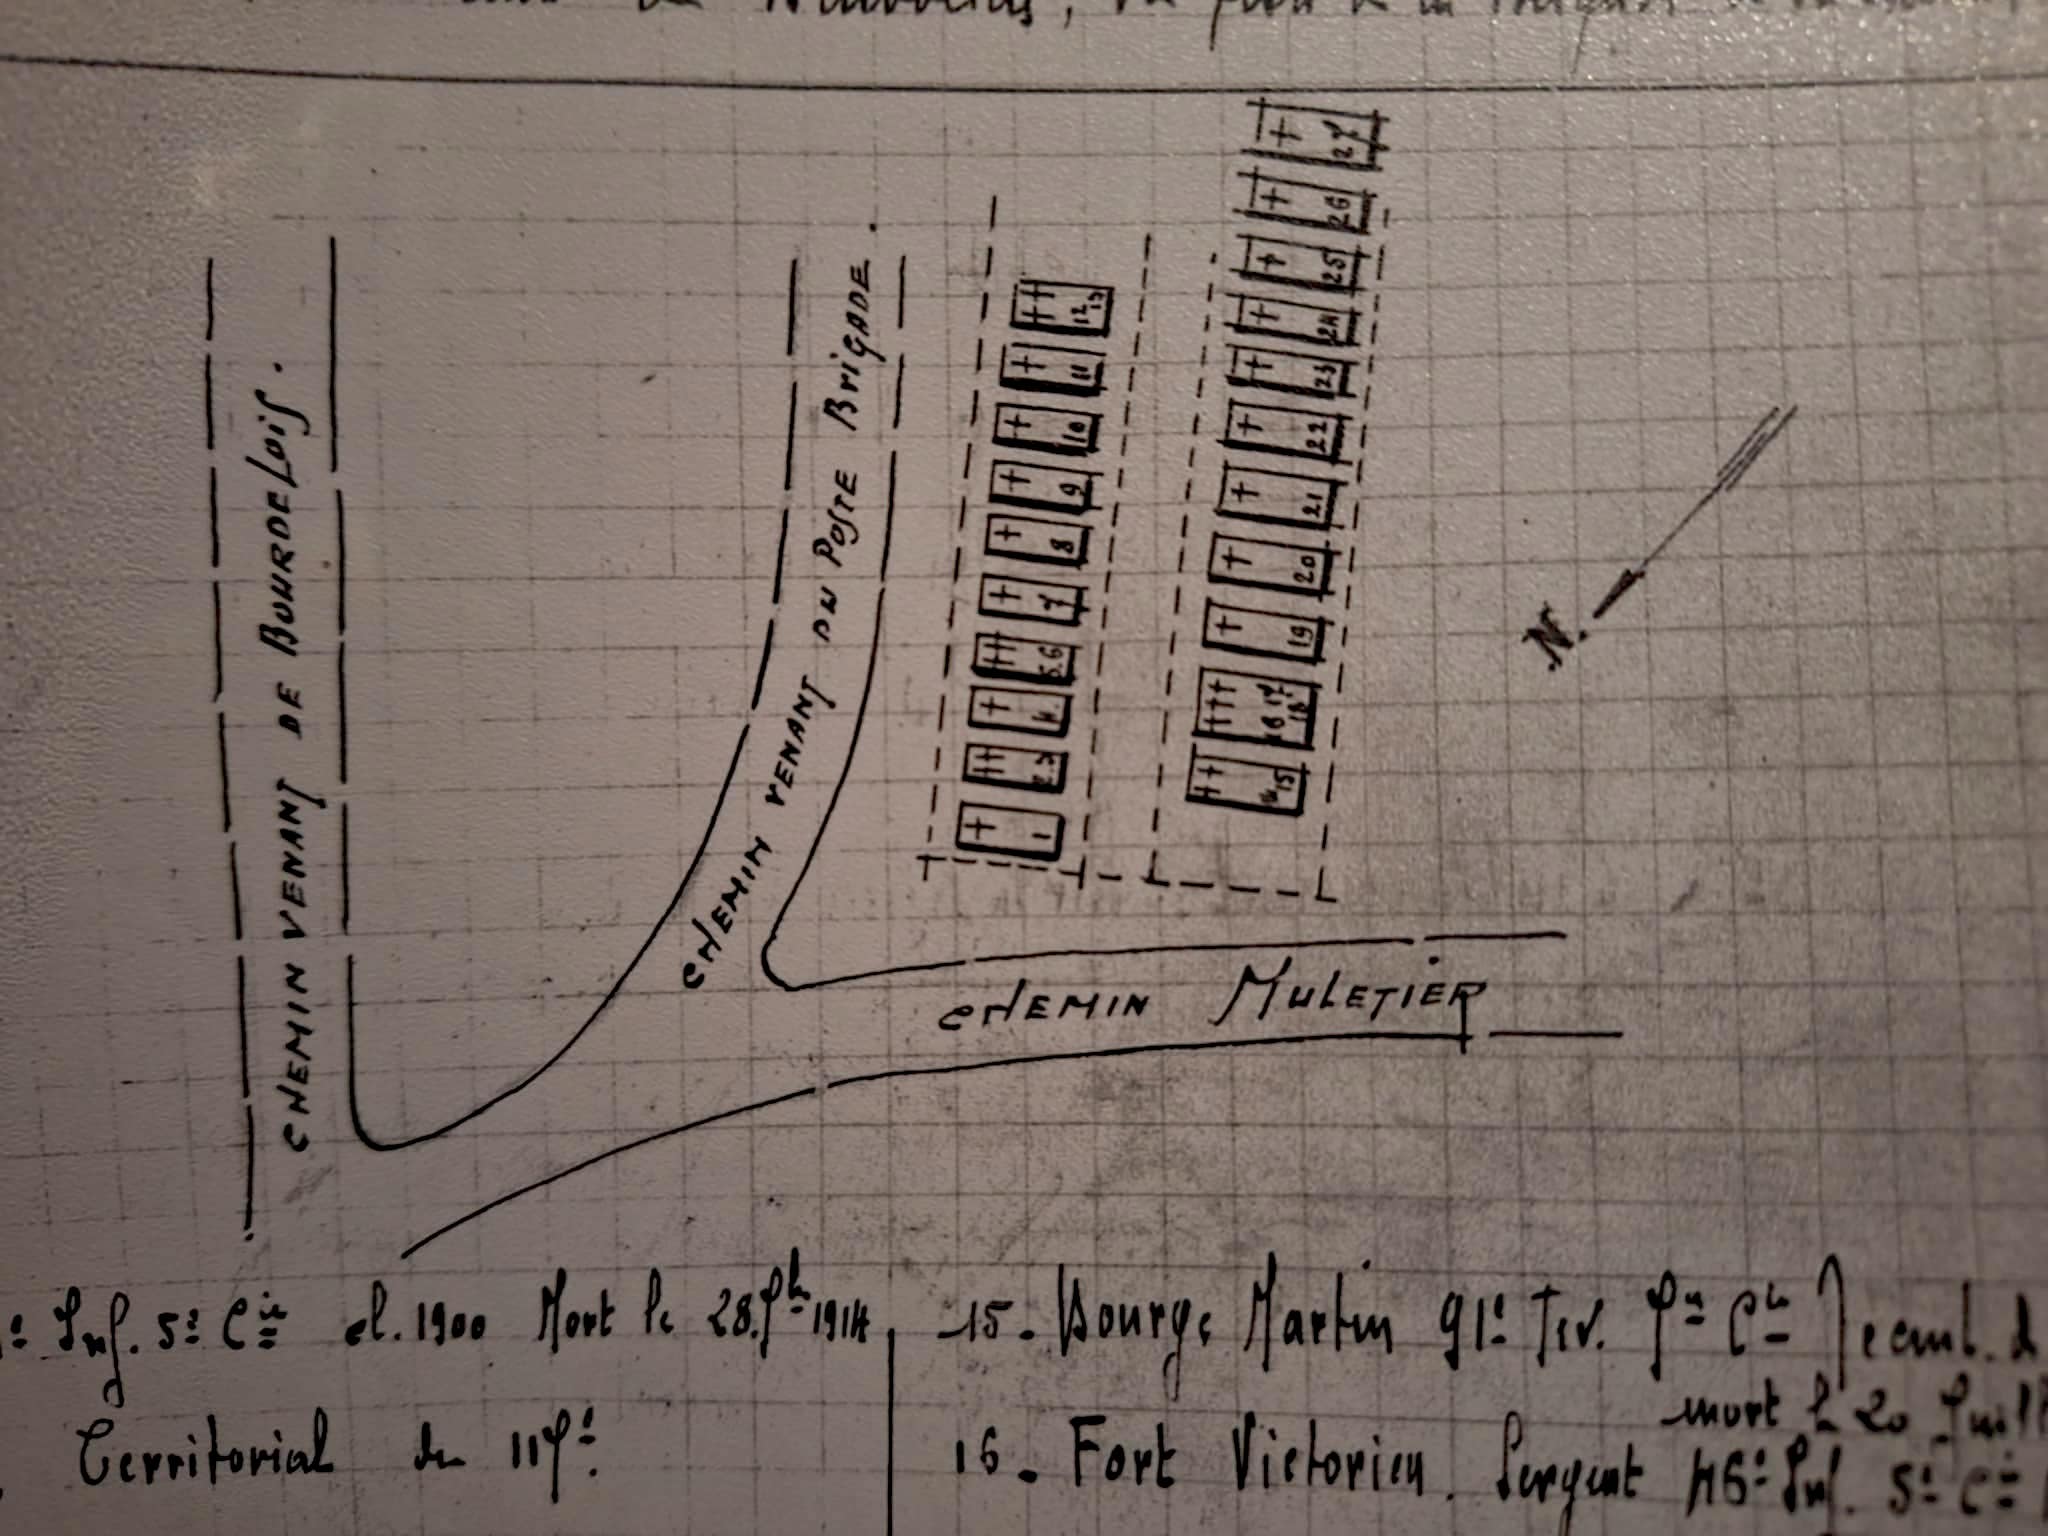 CHEMIN VENANT DE BOURDELOIS.
CHEMIN VENANT DU POSTE BRIGADE.
CHEMIN MULETIER
N.
1
2 3
4
5.6
7
8
9
10
11
12 13
14 15
16 17 18
19
20
21
22
23
24
25
26
27
Inf. 5e Cie cl. 1900 Mort le 28. 7bre 1914
Territorial du 117e.
15. Bourge Martin 91e Ter. 7e Cie
mort le 20 Juill
16. Fort Victorien. Sergent 46e Inf. 5e Cie